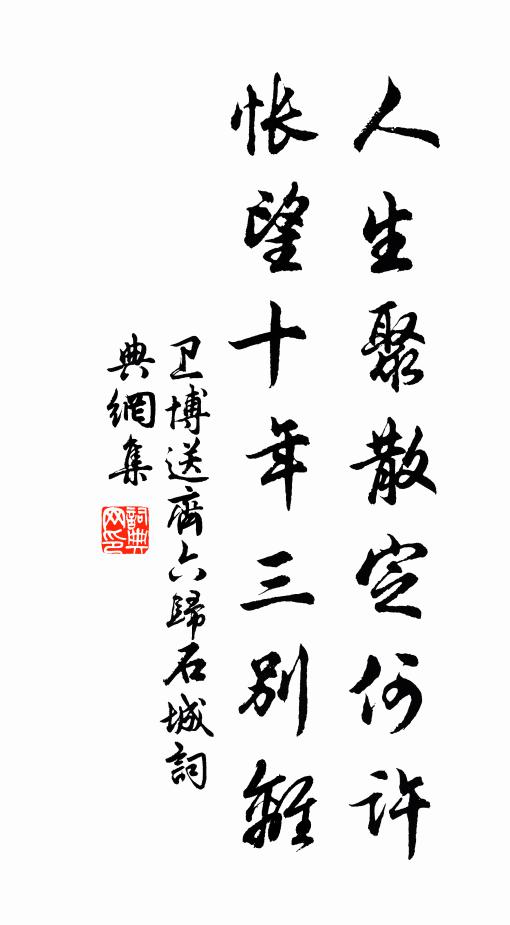 人生聚散定何许
怅望十年三别離
卫博送齊六歸石城詞
典網集
詞典
网印